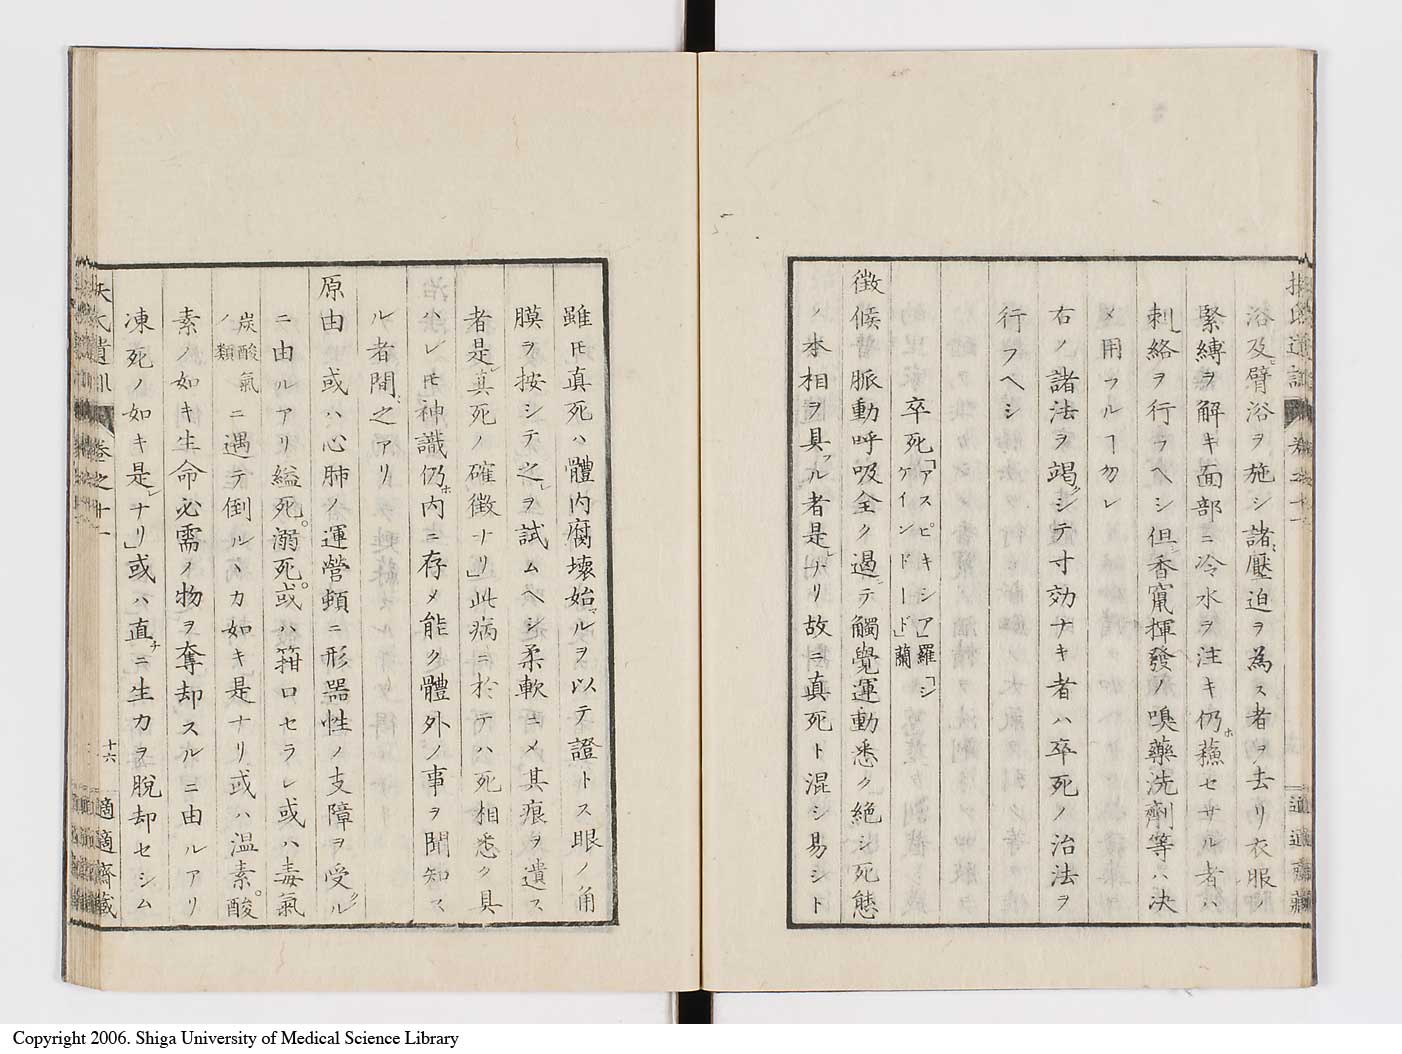 浴及ヒ臂浴ヲ施シ諸壓迫ヲ為ス者ヲ去リ衣服ノ
緊縛ヲ解キ面部ニ冷水ヲ注キ仍ホ蘓セサル者ハ
刺絡ヲ行ラヘシ但シ香竄揮發ノ嗅藥洗劑等ハ决
メ用フルヿ勿レ
右ノ諸法ヲ竭クシテ寸効ナキ者ハ卒死ノ治法ヲ
行フヘシ
卒死「アスピキシア」羅「シ
ケインドード」蘭
徴候普脈動呼吸全ク遏テ觸覺運動悉ク絶シ死態
ノ本相ヲ具フル者是レナリ故ニ真死ト混シ易シト
雖𪜈真死ハ體内腐壊始マルヲ以テ證トス眼ノ角
膜ヲ按シテ之レヲ試ムヘシ柔軟ニメ其痕ヲ遺ス
者是レ真死ノ確徴ナリ」此病ニ於テハ死相悉ク具
ハレ𪜈神識仍ホ内ニ存メ能ク體外ノ事ヲ聞知ス
ル者間之アリ
原由或ハ心肺ノ運營頓ニ形器性ノ支障ヲ受クル
ニ由ルアリ縊死。溺死。或ハ箝口セラレ或ハ毒氣
炭酸氣
ノ類
ニ遇テ倒ルヽカ如キ是ナリ或ハ温素。酸
素ノ如キ生命必需ノ物ヲ奪却スルニ由ルアリ
凍死ノ如キ是レナリ」或ハ直チニ生力ヲ脱却セシム
扶氏遺訓
卷之十一
十六
適適齋藏
Copyright 2006. Shiga University of Medical Science Library